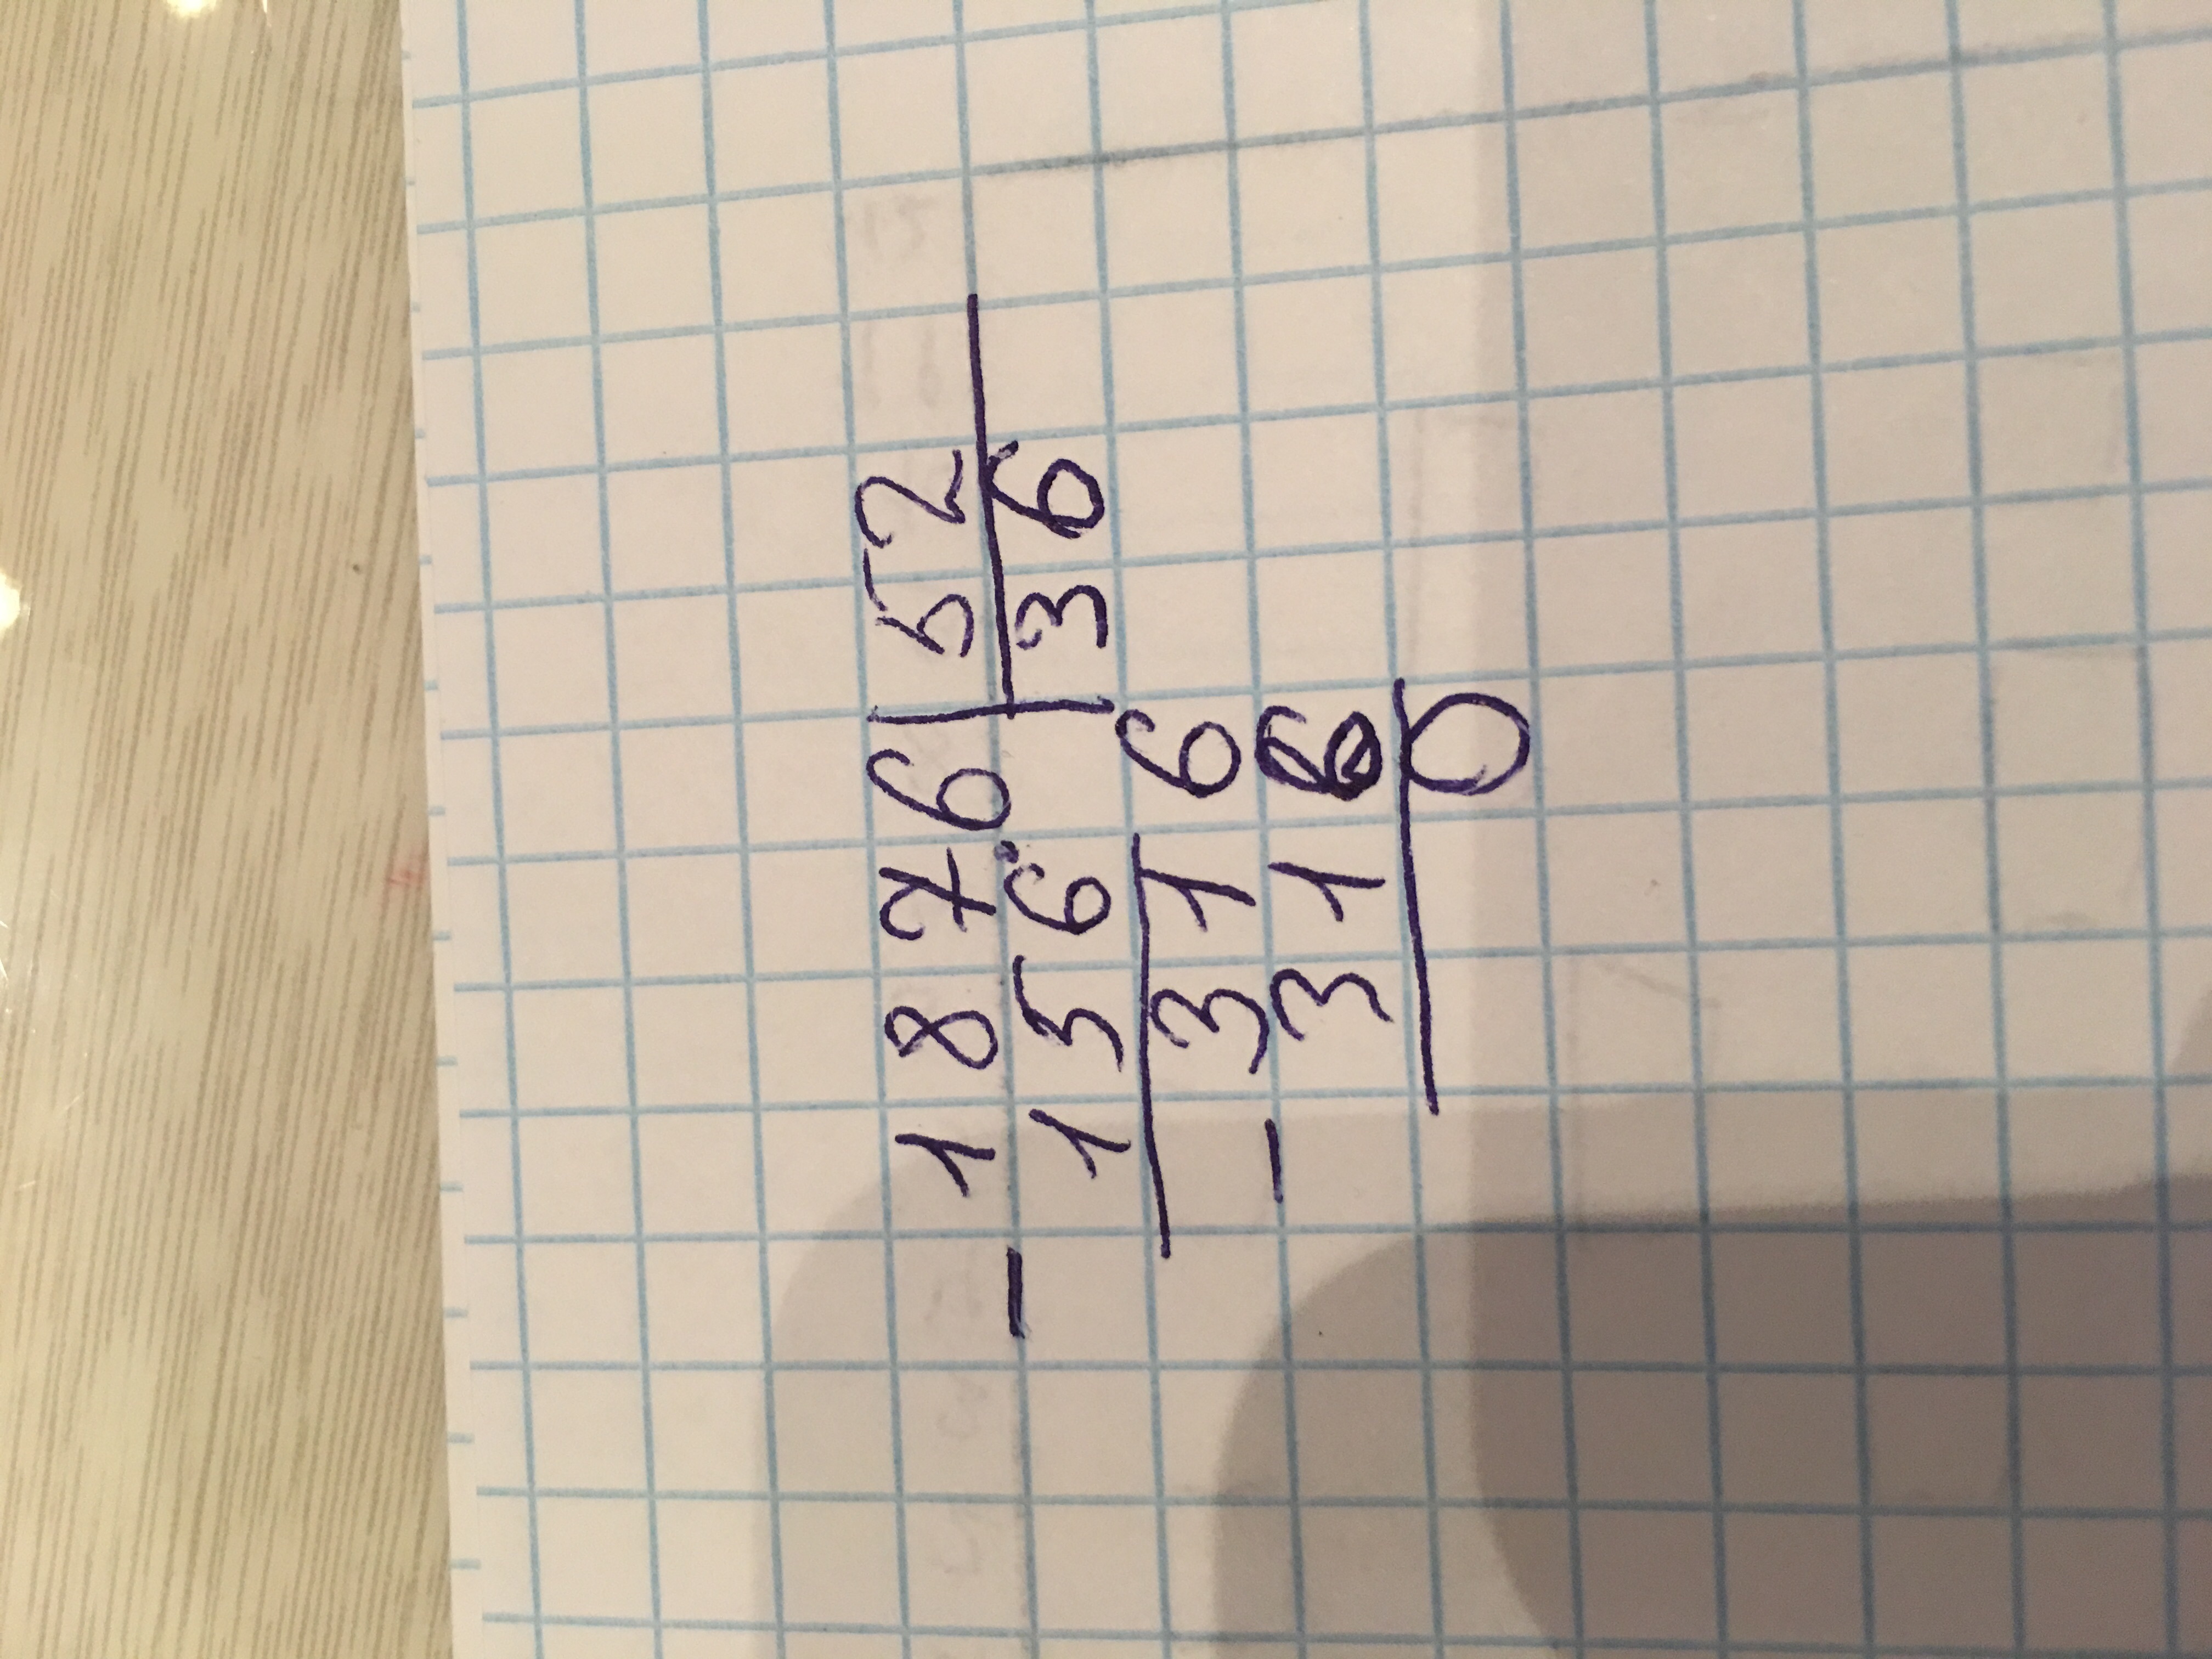 - 1876 | 52
156 | 36
316
- 316
0